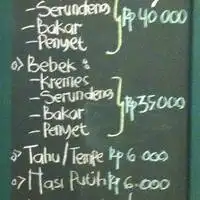 -Serundeng
-Bakar } Rp 40 000
-Penyet
o) Bebek :
-Kremes
-Serundeng
-Bakar } Rp 35000
-Penyet
o) Tahu/Tempe Rp 6 000
o) Nasi Putih Rp 6.000